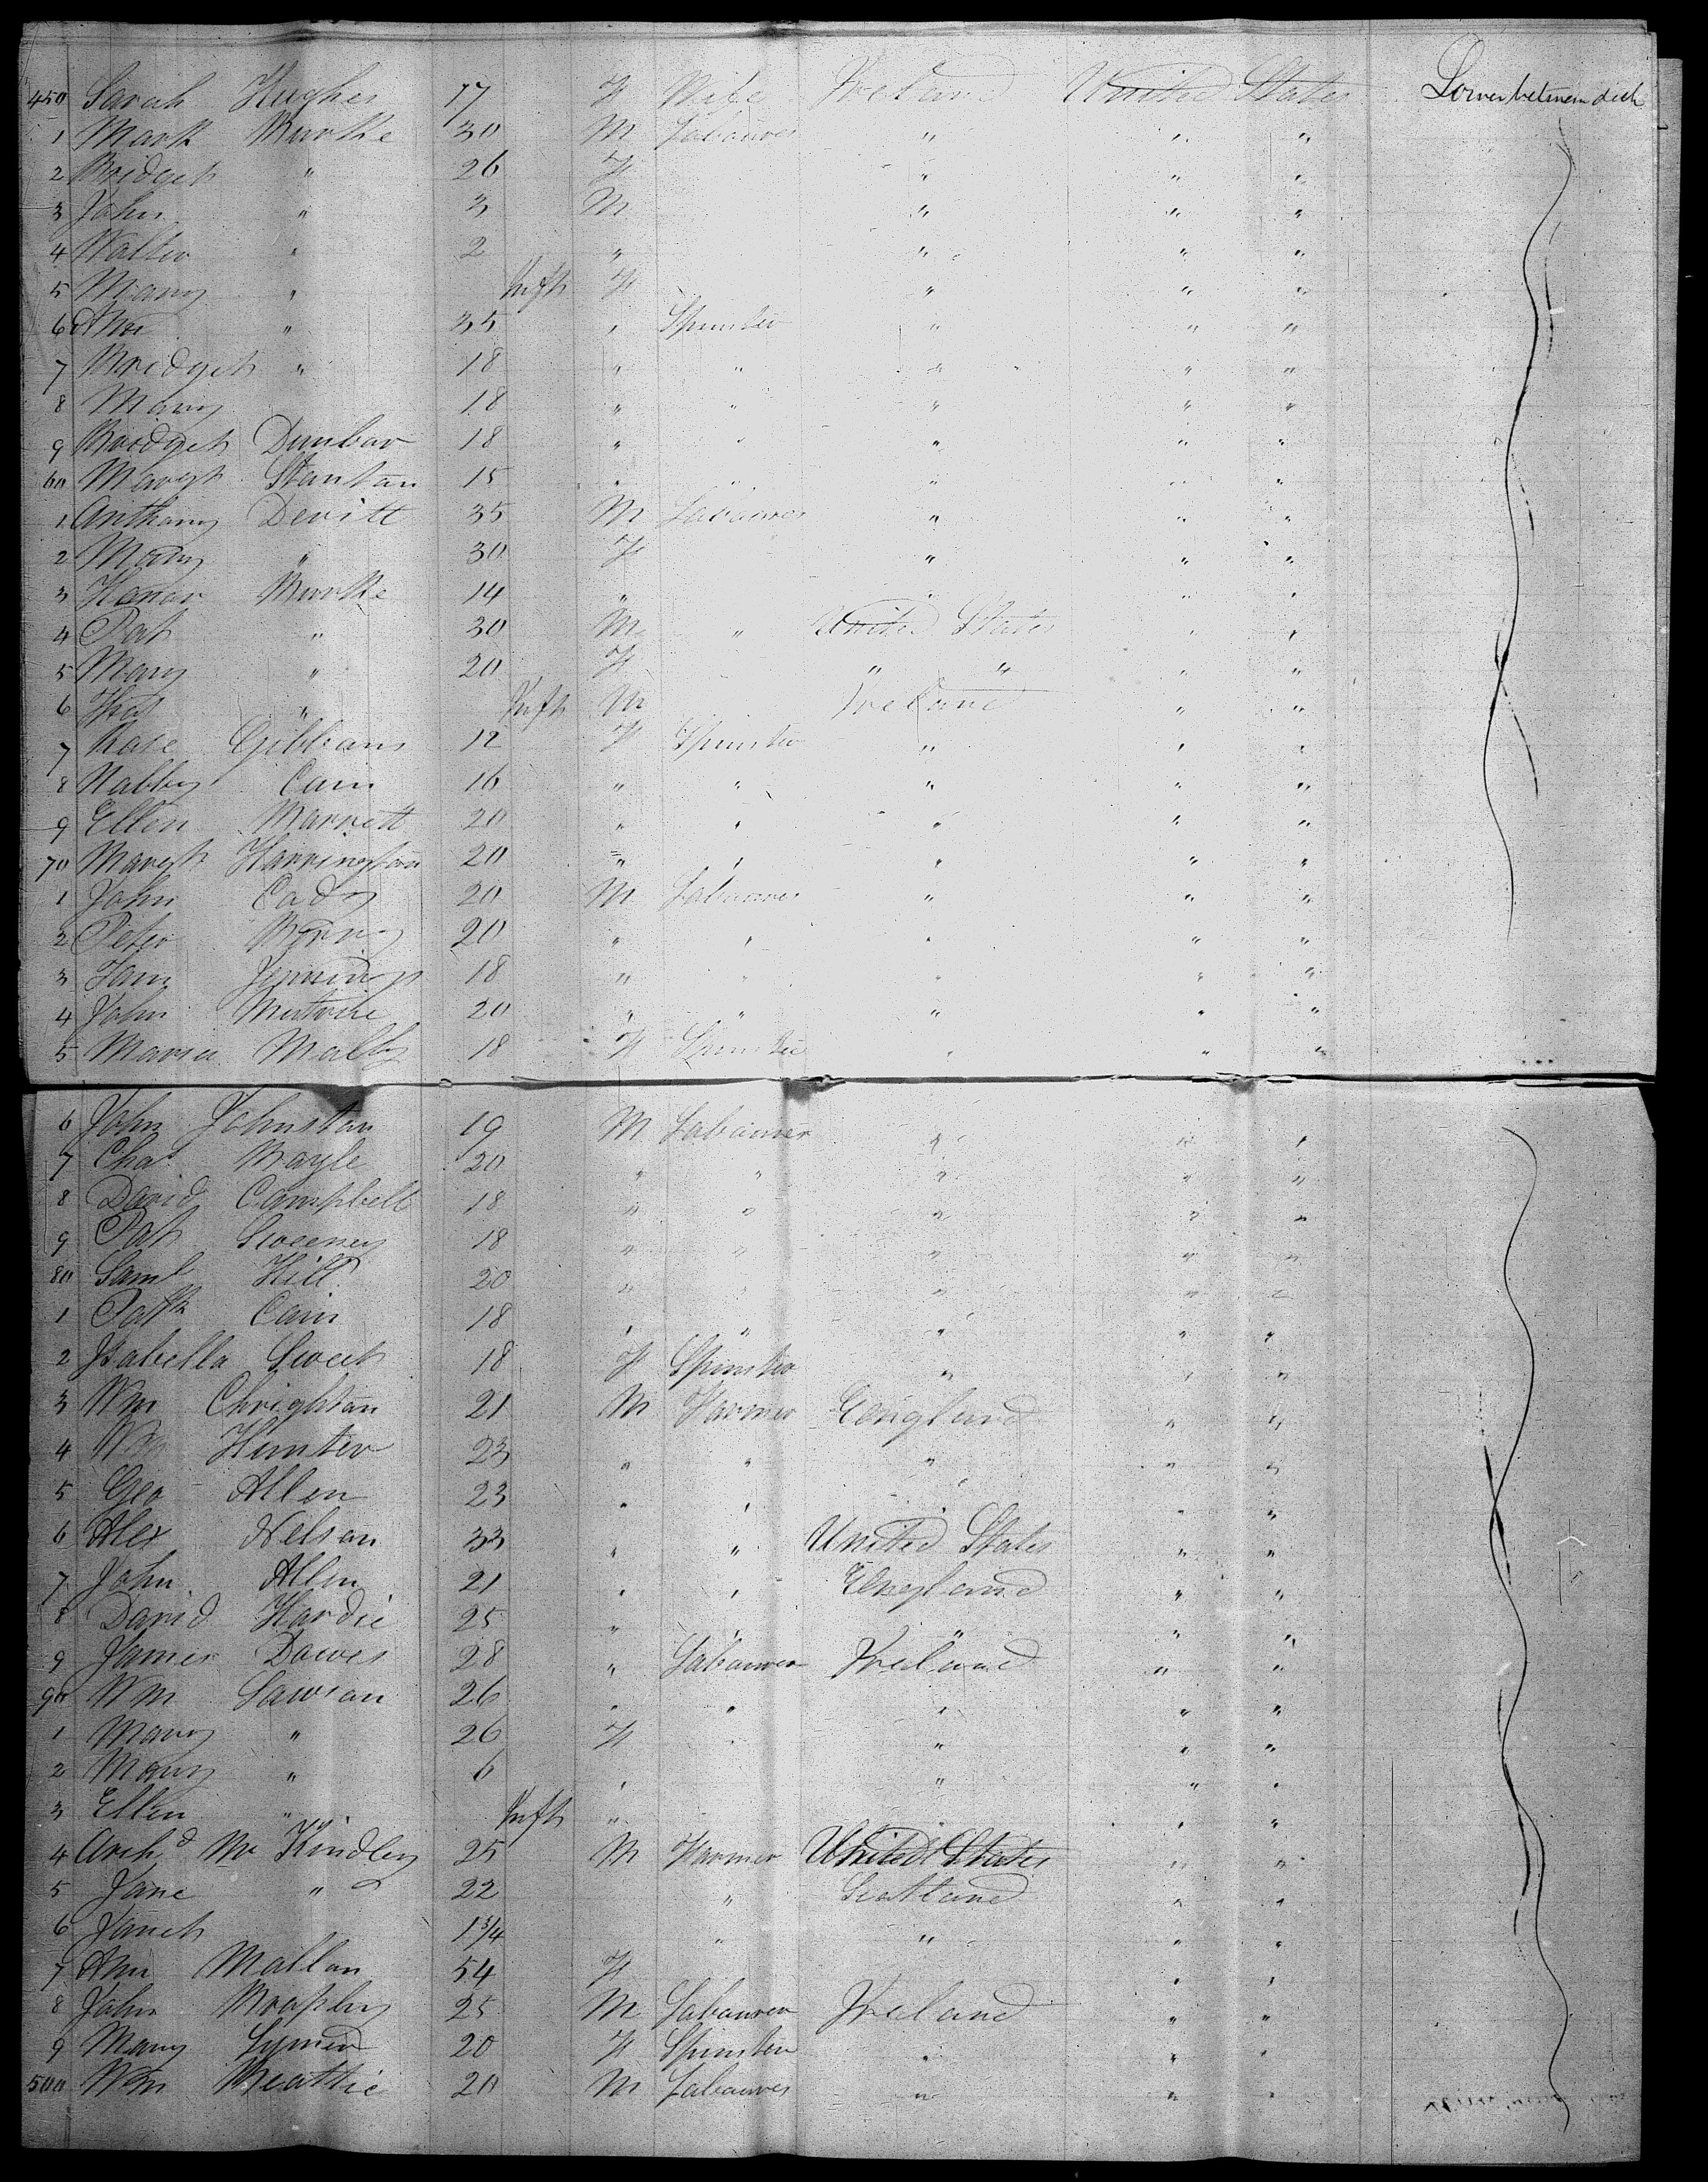 450 Sarah Hughes 17 F Wife Ireland United States Lower between deck
1 Mark Burke 30 M Labourer " " "
2 Bridget " 26 F " " "
3 John " 3 M " " "
4 Walter " 2 " " " "
5 Mary " Inft F " " "
6 Ann " 35 " Spinster " " "
7 Bridget " 18 " " " " "
8 Mary 18 " " " " "
9 Bridget Dunbar 18 " " " " "
60 Margt Stantan 15 " " " " "
1 Anthony Devitt 35 M Labourer " " "
2 Mary " 30 F " " "
3 Honor Burke 14 " " " "
4 Pat " 30 M " United States " "
5 Mary " 20 F " " " "
6 " Inft M Ireland " "
7 Kate Gibbans 12 F Spinster " " "
8 Nabby Cain 16 " " " " "
9 Ellen Barrett 20 " " " " "
70 Margt Harrington 20 " " " " "
1 John Cady 20 M Labourer " " "
2 Peter 20 " " " " "
3 Jennings 18 " " " " "
4 John 20 " " " " "
5 Maria Malby 18 F Spinster " " "
6 John Johnstan 19 M Labourer " " "
7 Chas Bayle 20 " " " " "
8 David Campbell 18 " " " " "
9 Pat Sweeney 18 " " " " "
80 Saml Hill 20 " " " " "
1 Patk Cain 18 " " " " "
2 Isabella Sweet 18 F Spinster " " "
3 Wm Chrightan 21 M Farmer England " "
4 Wm Hunter 23 " " " " "
5 Geo Allen 23 " " " "
6 Alex Nelson 33 " " United States " "
7 John Allen 21 " " England " "
8 David Hardie 25 " " " " "
9 James Dawes 28 " Labourer Ireland " "
90 Wm Lawsan 26 " " " " "
1 Mary " 26 F " " "
2 Mary " 6 " " " "
3 Ellen " Inft " " " "
4 Archd Mc Kindley 25 M Farmer United States " "
5 Jane " 22 " Scotland " "
6 Janet 1 3/4 " " " "
7 Ann Mallan 54 F " "
8 John 25 M Labourer Ireland " "
9 Mary 20 F Spinster " " "
500 Wm Beattie 20 M Labourer " " "